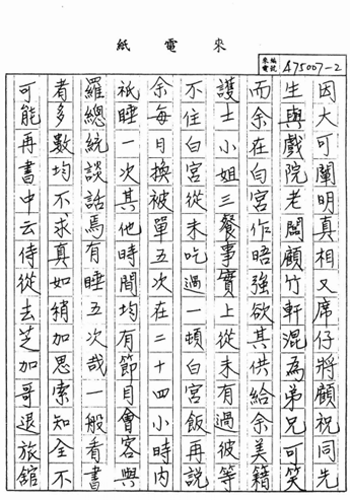 來電紙
來電 編號 A75007-2
因大可闡明真相又席仔將顧祝同先
生與戲院老闆顧竹軒混為弟兄可笑
而余在白宮作晤強欲其供給余美籍
護士小姐三餐事實上從未有過彼等
不住白宮從未吃過一頓白宮飯再説
余每日換被單五次在二十四小時內
祇睡一次其他時間均有節目會客與
羅總統談話焉有睡五次哉一般看書
者多數均不求真如稍加思索知全不
可能再書中云侍從去芝加哥退旅舘